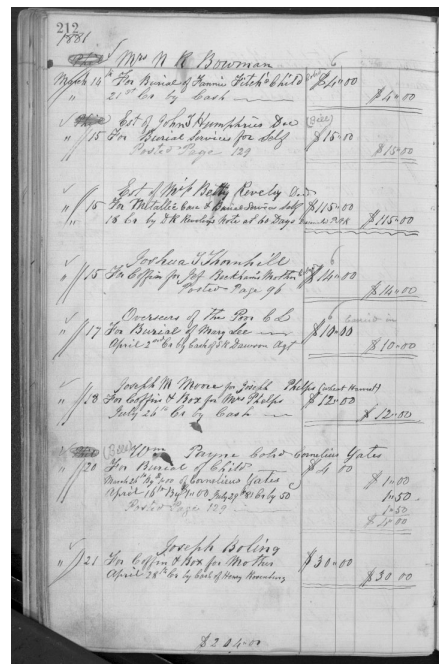 212
1881
Mrs N R Bowman
March 14th For Burial of Fannie Fitch's Child $4.00
" 21st Cr by Cash $4.00
Est of John T Humphries Dec
" 15 For Burial Services for Self $15.00
Posted Page 129 $15.00
Est of Betty Reveley
" 15 For Metallic Case & Services Self $115.00
18 Cr by D R Note at 60 Days $115.00
Joshua T Thornhill
" 15 For Coffin for Jos. Beckham's Mother $14.00
Posted Page 96 $14.00
Overseers of the Poor C L
" 17 For Burial of Mary Lee $10.00
April 2nd Cr by Cash of Dawson Agt $10.00
Joseph M Moore for Joseph Phelps
" 18 For Coffin & Box for Mrs Phelps $12.00
July 26th Cr by Cash $12.00
Wm Payne Cold Cornelius Yates
" 20 For Burial of Child $4.00
March 26th By of Cornelius Yates 1.00
April 16th By 1.00 July 29th 81 Cr by 50 1.50
Posted Page 129 1.50
$4.00
Joseph Boling
" 21 For Coffin & Box for Mother $30.00
April 28th Cr by Cash of Henry $30.00
$204.00